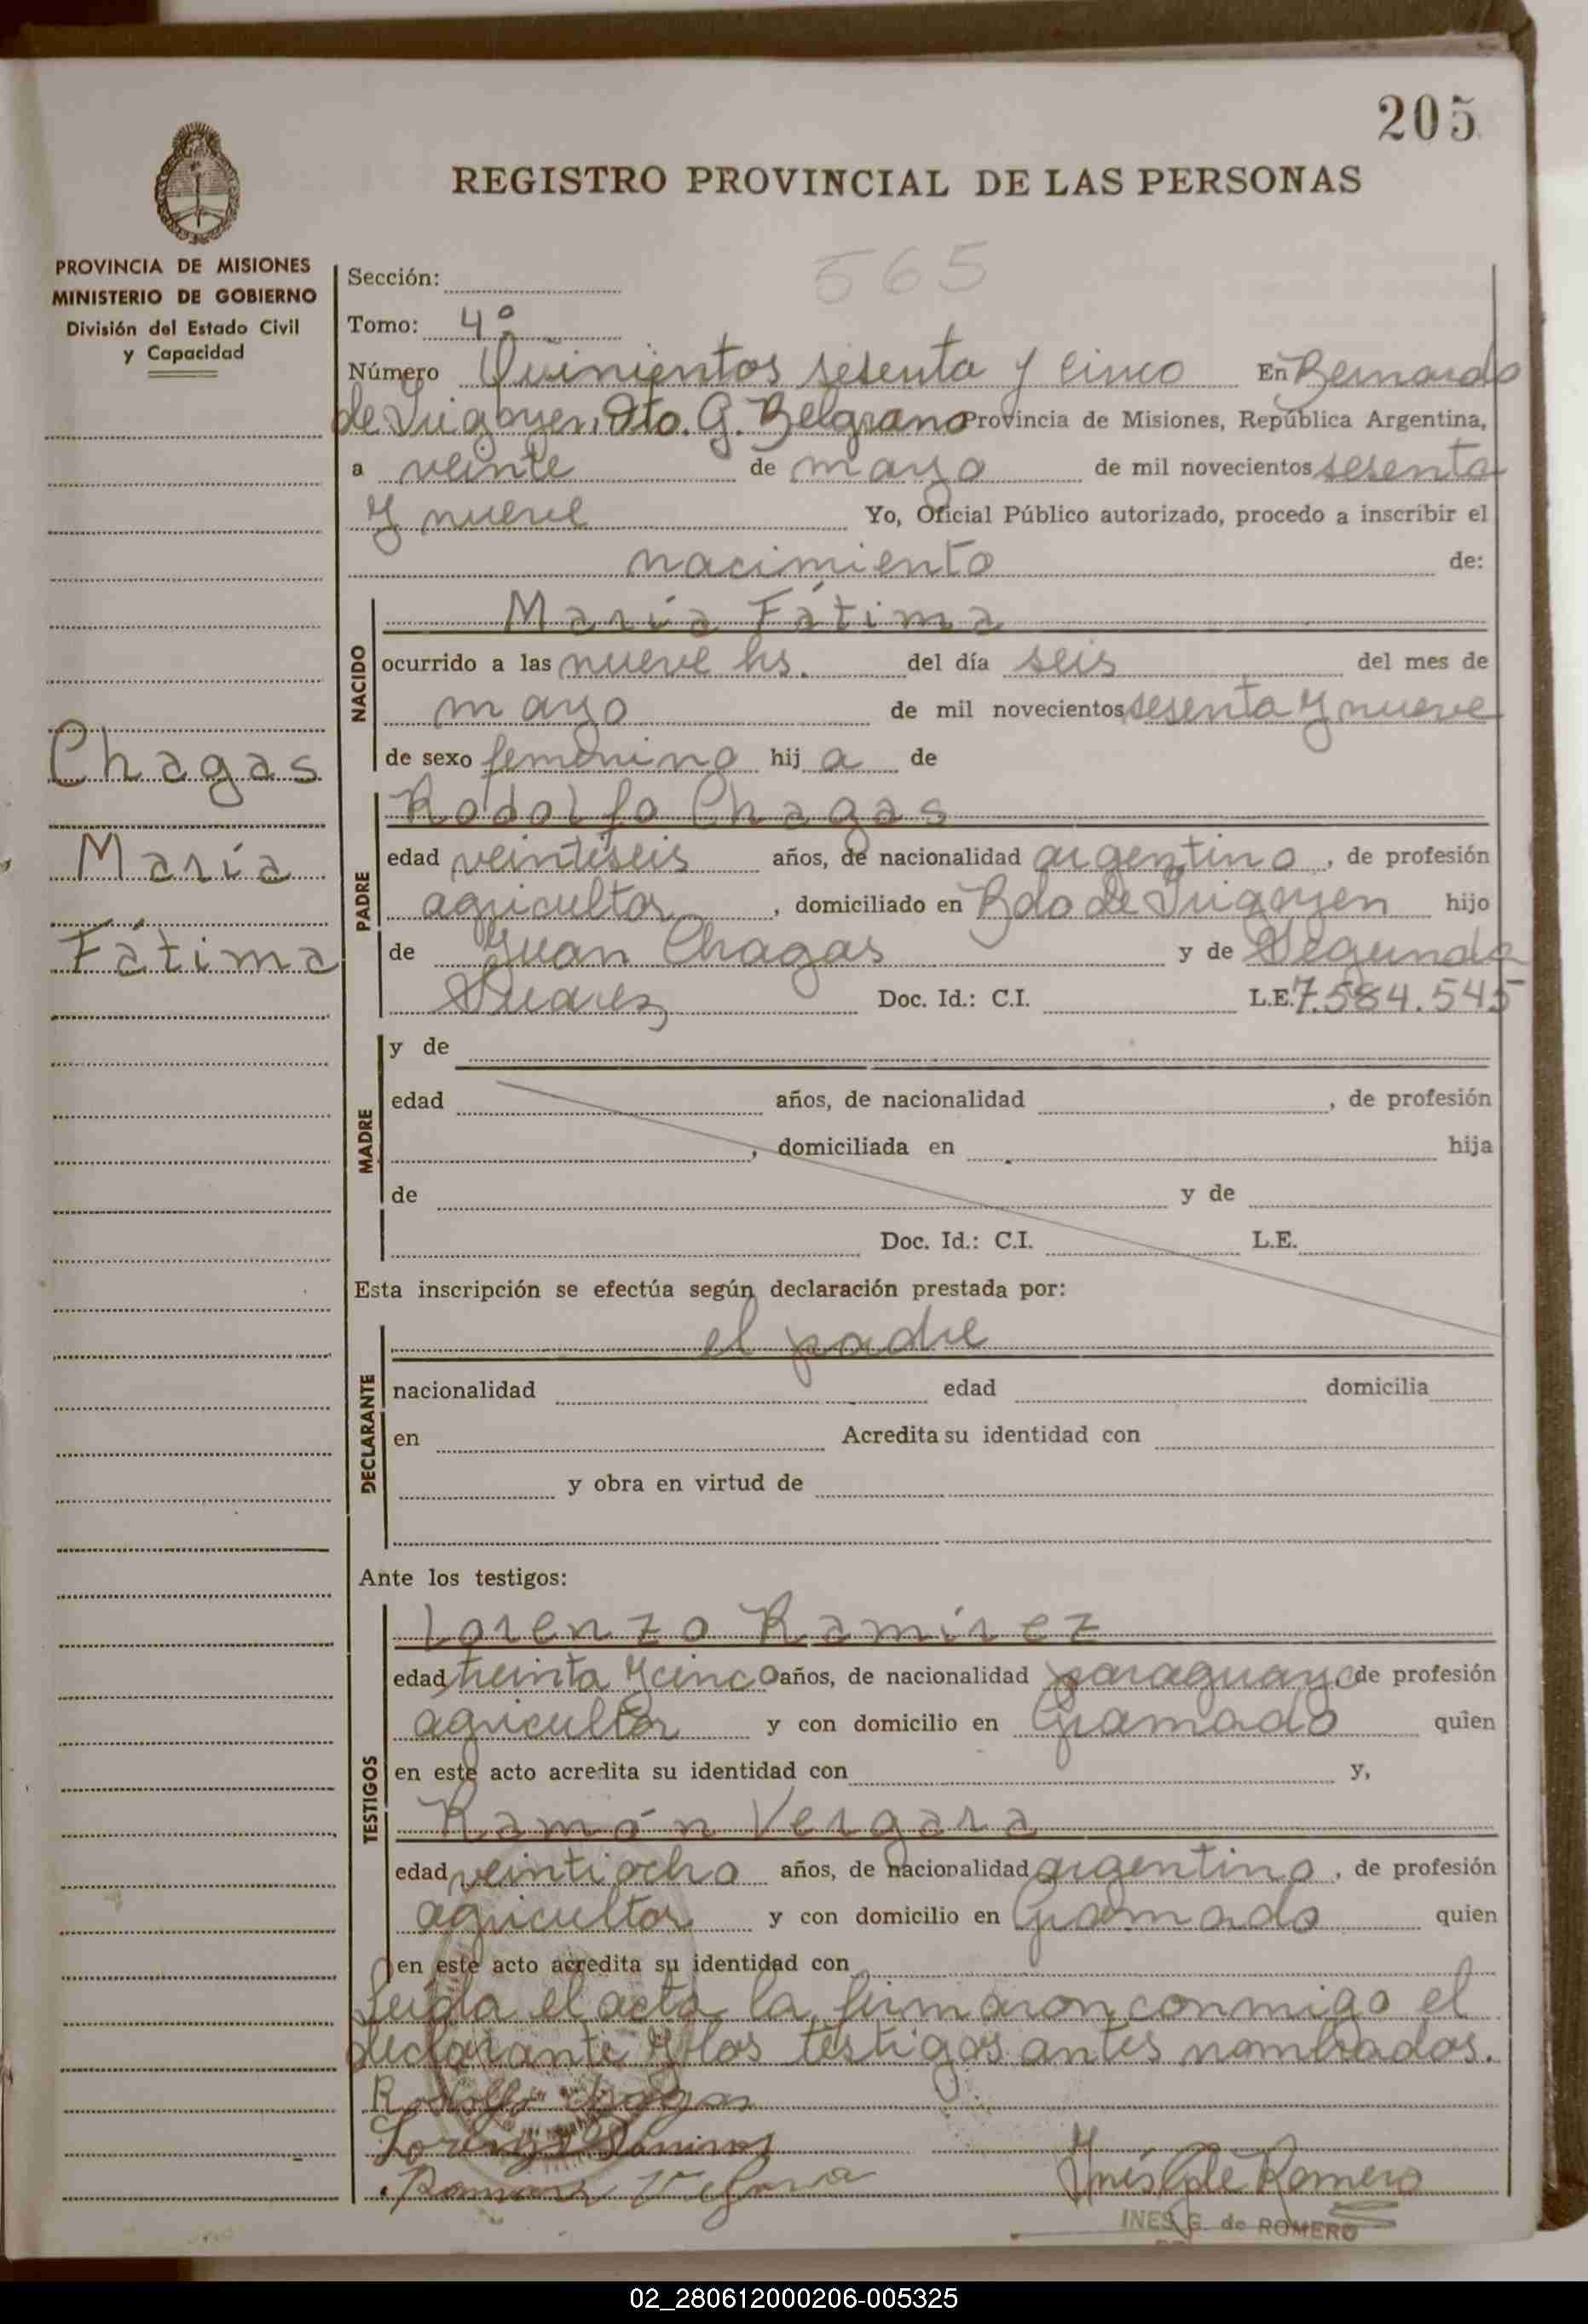 205
REGISTRO PROVINCIAL DE LAS PERSONAS
PROVINCIA DE MISIONES
MINISTERIO DE GOBIERNO
División del Estado Civil
y Capacidad
565
Sección:
Tomo: 4º
Número Quinientos sesenta y cinco En Bernardo
de Irigoyen, Dto. G. Belgrano Provincia de Misiones, República Argentina,
a veinte de mayo de mil novecientos sesenta
y nueve Yo, Oficial Público autorizado, procedo a inscribir el
nacimiento de:
NACIDO
María Fátima
ocurrido a las nueve hs. del día seis del mes de
mayo de mil novecientos sesenta y nueve
de sexo femenino hij a de
Chagas
María
Fátima
PADRE
Rodolfo Chagas
edad veintiseis años, de nacionalidad argentino, de profesión
agricultor, domiciliado en Bdo de Irigoyen hijo
de Juan Chagas y de Segunda
Suarez Doc. Id.: C.I. L.E. 7.584.545
MADRE
y de
edad años, de nacionalidad , de profesión
, domiciliada en hija
de y de
Doc. Id.: C.I. L.E.
Esta inscripción se efectúa según declaración prestada por:
DECLARANTE
el padre
nacionalidad edad domicilia
en Acredita su identidad con
y obra en virtud de
Ante los testigos:
TESTIGOS
Lorenzo Ramírez
edad treinta y cinco años, de nacionalidad paraguayo de profesión
agricultor y con domicilio en Gramado quien
en este acto acredita su identidad con y,
Ramón Vergara
edad veintiocho años, de nacionalidad argentino, de profesión
agricultor y con domicilio en Gramado quien
en este acto acredita su identidad con
Leída el acta la firmaron conmigo el
declarante y los testigos antes nombrados.
Rodolfo Chagas
Lorenzo Ramirez
Ramon Vegara
Inés G de Romero
INES G. de ROMERO
02_280612000206-005325